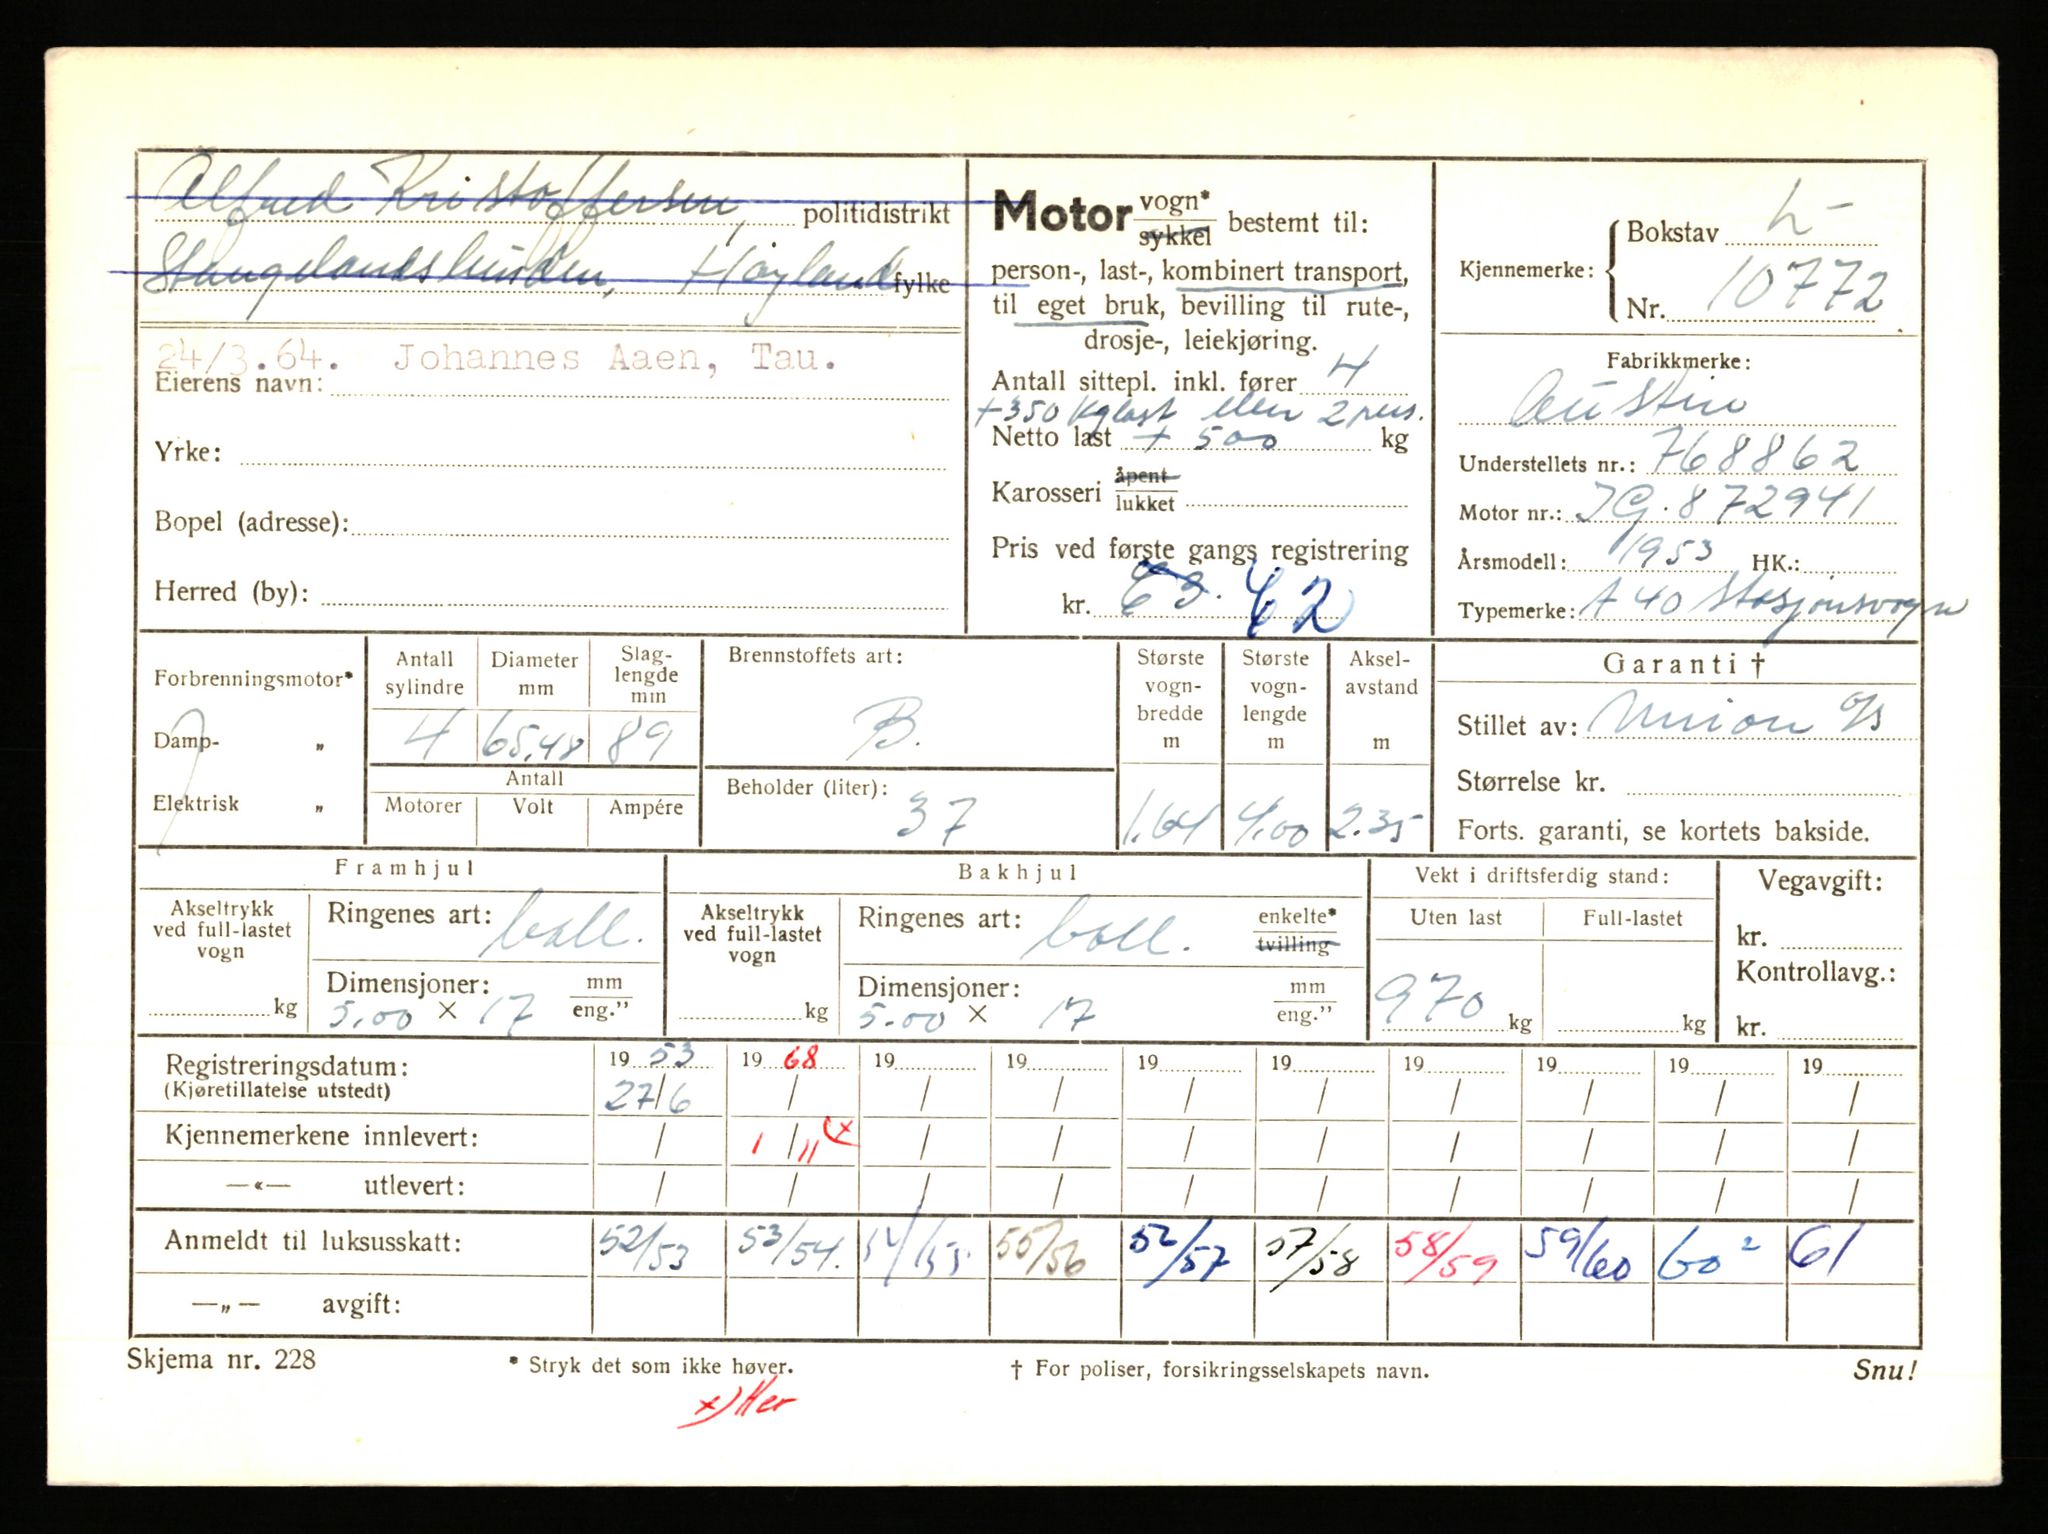 Alfred Kristoffersen, politidistrikt
Stangelandslunden, Høyland fylke
24/3.64. Johannes Aaen, Tau.
Eierens navn:
Yrke:
Bopel (adresse):
Herred (by):
Motor vogn* sykkel bestemt til:
person-, last-, kombinert transport,
til eget bruk, bevilling til rute-,
drosje-, leiekjøring.
Antall sittepl. inkl. fører 4
+350 kg last eller 2 pers.
Netto last + 500 kg
Karosseri åpent lukket
Pris ved første gangs registrering
kr. 63. 62
Kjennemerke: Bokstav L-
Nr. 10772
Fabrikkmerke:
Austin
Understellets nr.: 768862
Motor nr.: IG. 872941
Årsmodell: 1953 HK.:
Typemerke: A 40 Stasjonsvogn
Forbrenningsmotor*
Damp- „
Elektrisk „
Antall sylindre Diameter mm Slag-lengde mm
4 65,48 89
Antall
Motorer Volt Ampére
Brennstoffets art:
B.
Beholder (liter):
37
Største vogn-bredde m Største vogn-lengde m Aksel-avstand m
1.64 4.00 2.35
Garanti †
Stillet av: Union a/s
Størrelse kr.
Forts. garanti, se kortets bakside.
Framhjul
Akseltrykk ved full-lastet vogn
kg
Ringenes art: ball.
Dimensjoner: mm eng."
5.00 × 17
Bakhjul
Akseltrykk ved full-lastet vogn
kg
Ringenes art: ball. enkelte* tvilling
Dimensjoner: mm eng."
5.00 × 17
Vekt i driftsferdig stand:
Uten last Full-lastet
970 kg kg
Vegavgift:
kr.
Kontrollavg.:
kr.
Registreringsdatum: 19 53 19 68 19 19 19 19 19 19 19 19
(Kjøretillatelse utstedt) 27/6 / / / / / / / / /
Kjennemerkene innlevert: / 1/11 x) / / / / / / / /
—«— utlevert: / / / / / / / / / /
Anmeldt til luksusskatt: 52/53 53/54. 54/55. 55/56 52/57 57/58 58/59 59/60 60² 61
—„— avgift:
Skjema nr. 228 * Stryk det som ikke høver. † For poliser, forsikringsselskapets navn. Snu!
x) Her